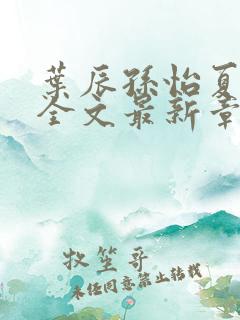 葉辰孫怡夏
全文最新章
牧笙哥
未经同意禁止转载